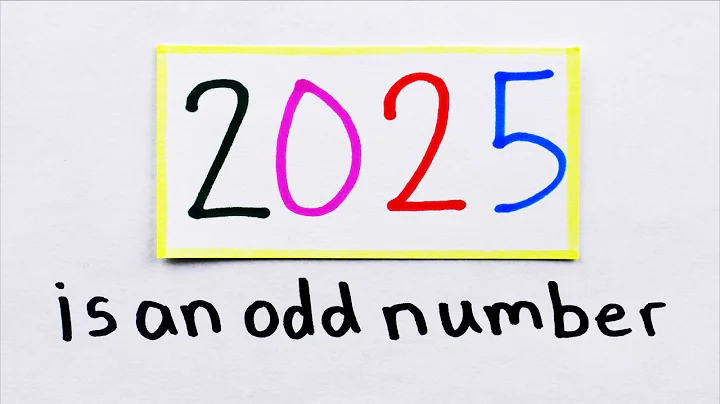 2025
is an odd number